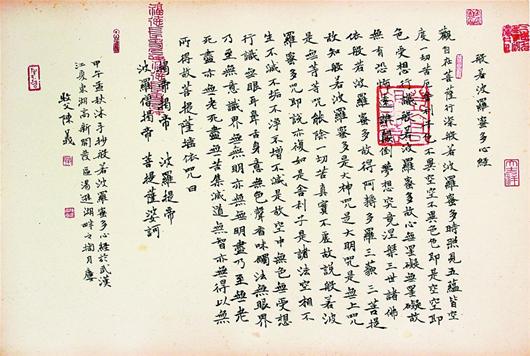 般若波羅蜜多心經
觀自在菩薩行深般若波羅蜜多時照見五蘊皆空
度一切苦厄舍利子色不異空空不異色色即是空空即
色受想行識般若波羅蜜多故心無罣礙無罣礙故
無有恐怖遠離顛倒夢想究竟涅槃三世諸佛
依般若波羅蜜多故得阿耨多羅三藐三菩提
故知般若波羅蜜多是大神咒是大明咒是無上咒
是無等等咒能除一切苦真實不虛故說般若波
羅蜜多咒即說亦復如是舍利子是諸法空相不
生不滅不垢不淨不增不減是故空中無色無受想
行識無眼耳鼻舌身意無色聲香味觸法無眼界
乃至無意識界無無明亦無無明盡乃至無老
死盡亦無老死盡無苦集滅道無智亦無得以無
所得故菩提薩埵依咒曰
揭帝揭帝 波羅揭帝
波羅僧揭帝 菩提薩婆訶
甲午孟秋沐手抄般若波羅蜜多心經於武漢
江夏東湖高新開發區湯遜湖畔之攬月廬
陳義